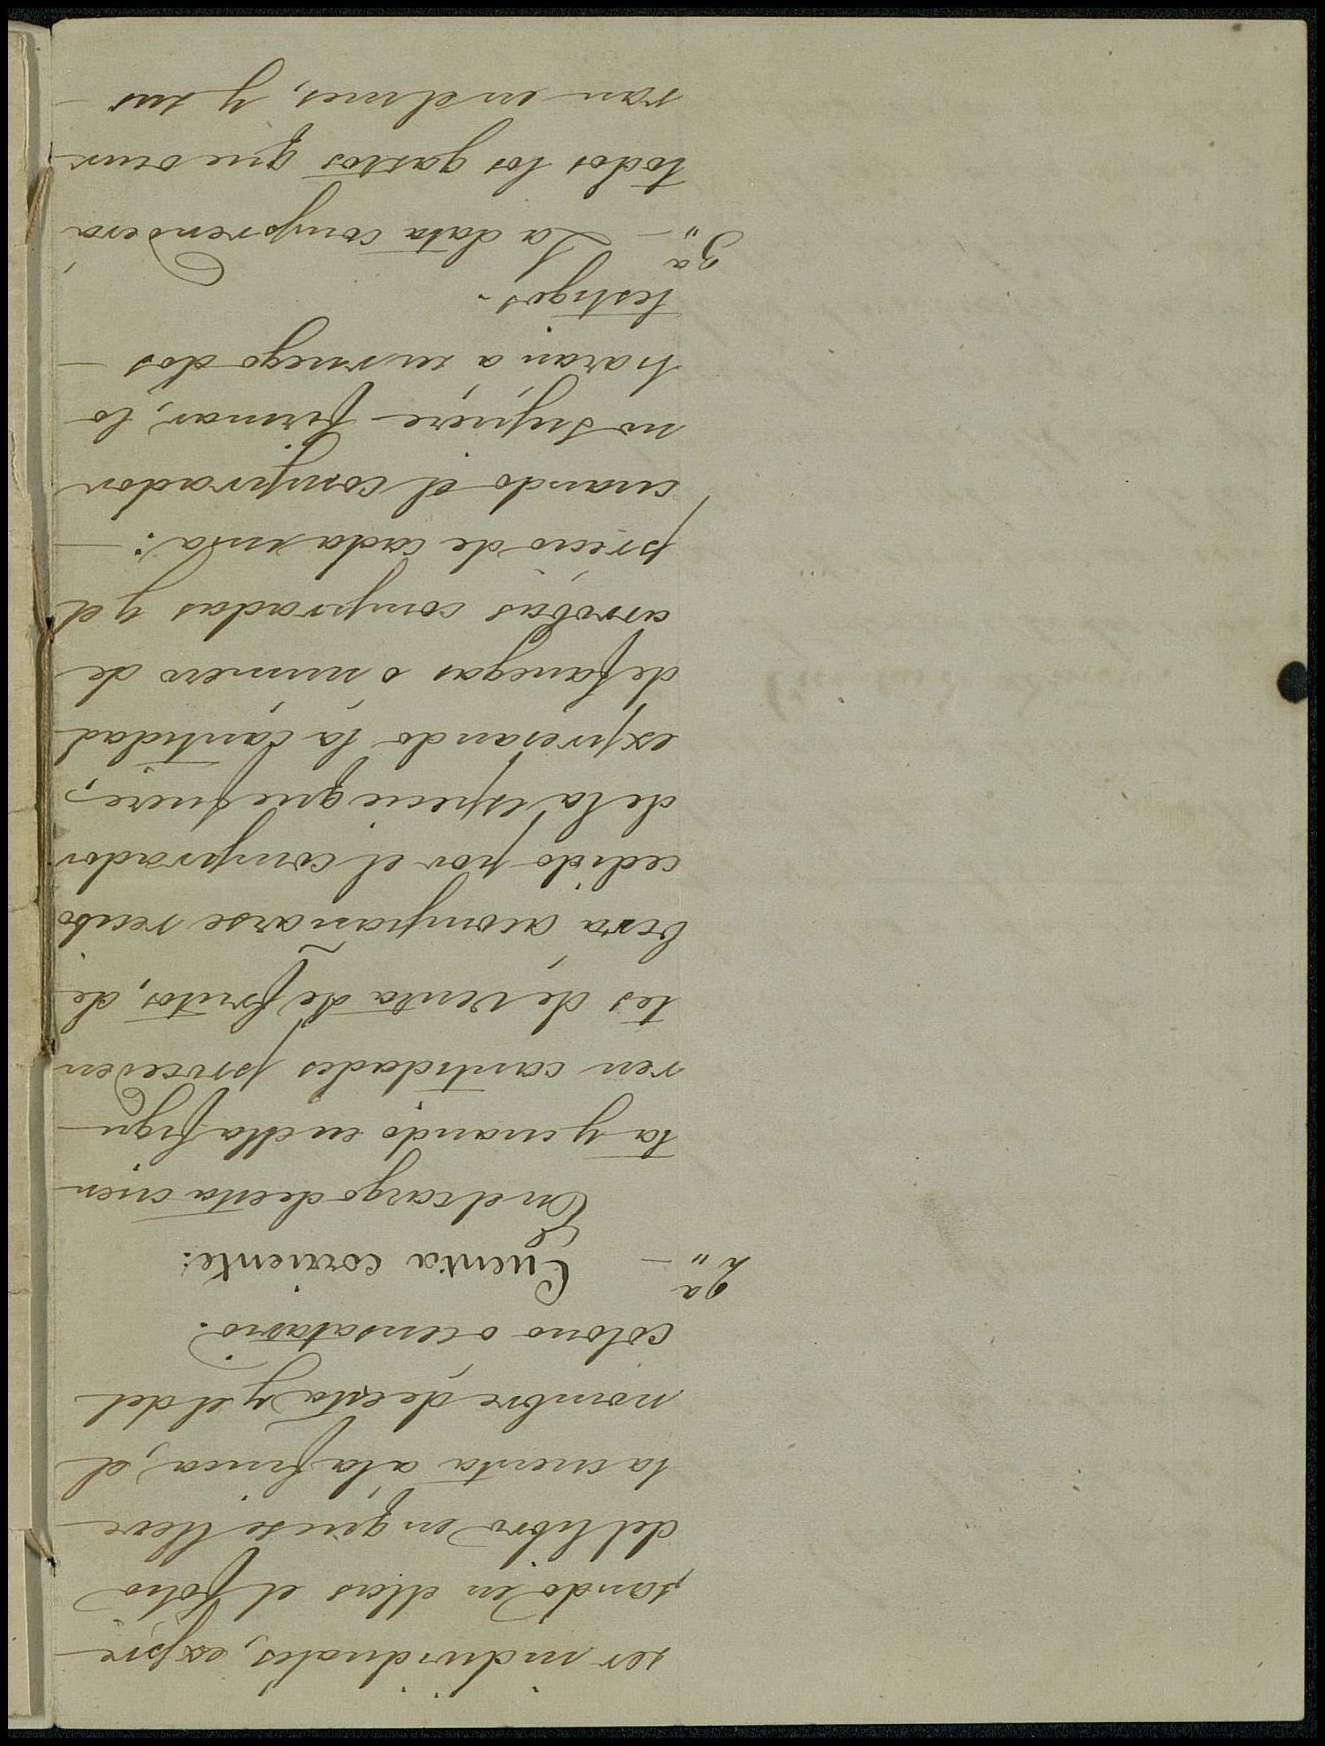 ser individuales, expre-
sando en ellas el folio
del libro en que se lleve
la cuenta a la finca, el
nombre de esta y el del
colono o censatario.
2ª„ — Cuenta corriente:
En el cargo de esta cuen-
ta y cuando en ella figu-
ren cantidades proceden
tes de venta de frutos, de
berá acompañarse recibo
cedido por el comprador
de la especie que fuere,
expresando la cantidad
de fanegas ó número de
arrobas compradas y el
precio de cada una: —
cuando el comprador
no supiere firmar, lo
harán a su ruego dos —
testigos.-
3ª„ — La data comprenderá
todos los gastos que ocur-
ran en el mes, y sus —